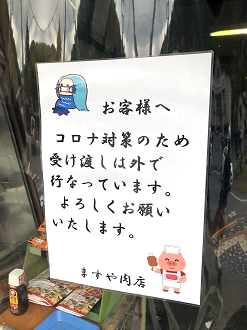 お客様へ
コロナ対策のため
受け渡しは外で
行なっています。
よろしくお願い
いたします。
ますや肉店